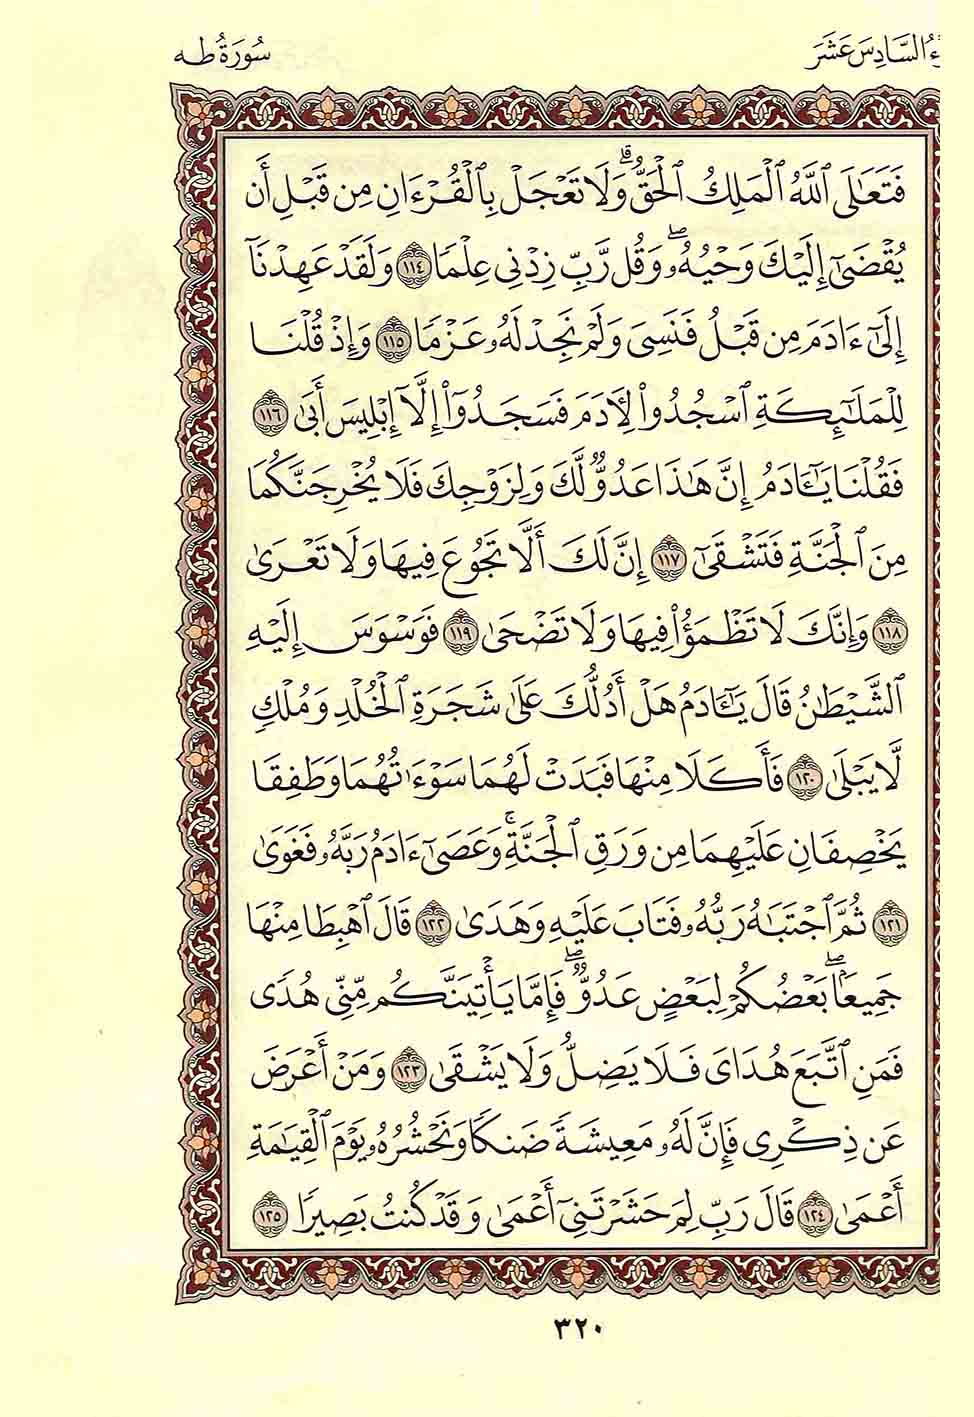 ٱلسَّادِسَ عَشَرَ
سُورَةُ طه
فَتَعَٰلَى ٱللَّهُ ٱلْمَلِكُ ٱلْحَقُّ ۗ وَلَا تَعْجَلْ بِٱلْقُرْءَانِ مِن قَبْلِ أَن
يُقْضَىٰٓ إِلَيْكَ وَحْيُهُۥ ۖ وَقُل رَّبِّ زِدْنِى عِلْمًا ١١٤ وَلَقَدْ عَهِدْنَآ
إِلَىٰٓ ءَادَمَ مِن قَبْلُ فَنَسِىَ وَلَمْ نَجِدْ لَهُۥ عَزْمًا ١١٥ وَإِذْ قُلْنَا
لِلْمَلَٰٓئِكَةِ ٱسْجُدُوا۟ لِءَادَمَ فَسَجَدُوٓا۟ إِلَّآ إِبْلِيسَ أَبَىٰ ١١٦
فَقُلْنَا يَٰٓـَٔادَمُ إِنَّ هَٰذَا عَدُوٌّ لَّكَ وَلِزَوْجِكَ فَلَا يُخْرِجَنَّكُمَا
مِنَ ٱلْجَنَّةِ فَتَشْقَىٰٓ ١١٧ إِنَّ لَكَ أَلَّا تَجُوعَ فِيهَا وَلَا تَعْرَىٰ
١١٨ وَإِنَّكَ لَا تَظْمَؤُا۟ فِيهَا وَلَا تَضْحَىٰ ١١٩ فَوَسْوَسَ إِلَيْهِ
ٱلشَّيْطَٰنُ قَالَ يَٰٓـَٔادَمُ هَلْ أَدُلُّكَ عَلَىٰ شَجَرَةِ ٱلْخُلْدِ وَمُلْكٍ
لَّا يَبْلَىٰ ١٢٠ فَأَكَلَا مِنْهَا فَبَدَتْ لَهُمَا سَوْءَٰتُهُمَا وَطَفِقَا
يَخْصِفَانِ عَلَيْهِمَا مِن وَرَقِ ٱلْجَنَّةِ ۚ وَعَصَىٰٓ ءَادَمُ رَبَّهُۥ فَغَوَىٰ
١٢١ ثُمَّ ٱجْتَبَٰهُ رَبُّهُۥ فَتَابَ عَلَيْهِ وَهَدَىٰ ١٢٢ قَالَ ٱهْبِطَا مِنْهَا
جَمِيعًۢا ۖ بَعْضُكُمْ لِبَعْضٍ عَدُوٌّ ۖ فَإِمَّا يَأْتِيَنَّكُم مِّنِّى هُدًى
فَمَنِ ٱتَّبَعَ هُدَاىَ فَلَا يَضِلُّ وَلَا يَشْقَىٰ ١٢٣ وَمَنْ أَعْرَضَ
عَن ذِكْرِى فَإِنَّ لَهُۥ مَعِيشَةً ضَنكًا وَنَحْشُرُهُۥ يَوْمَ ٱلْقِيَٰمَةِ
أَعْمَىٰ ١٢٤ قَالَ رَبِّ لِمَ حَشَرْتَنِىٓ أَعْمَىٰ وَقَدْ كُنتُ بَصِيرًا ١٢٥
٣٢٠